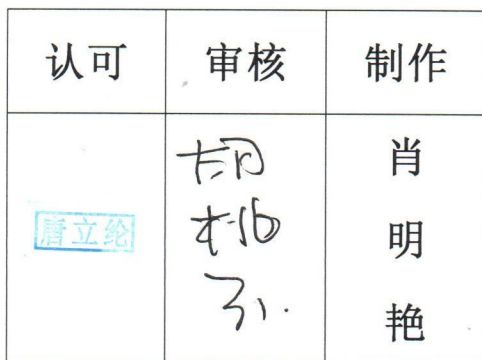 认可 审核 制作
唐立纶
肖
明
艳